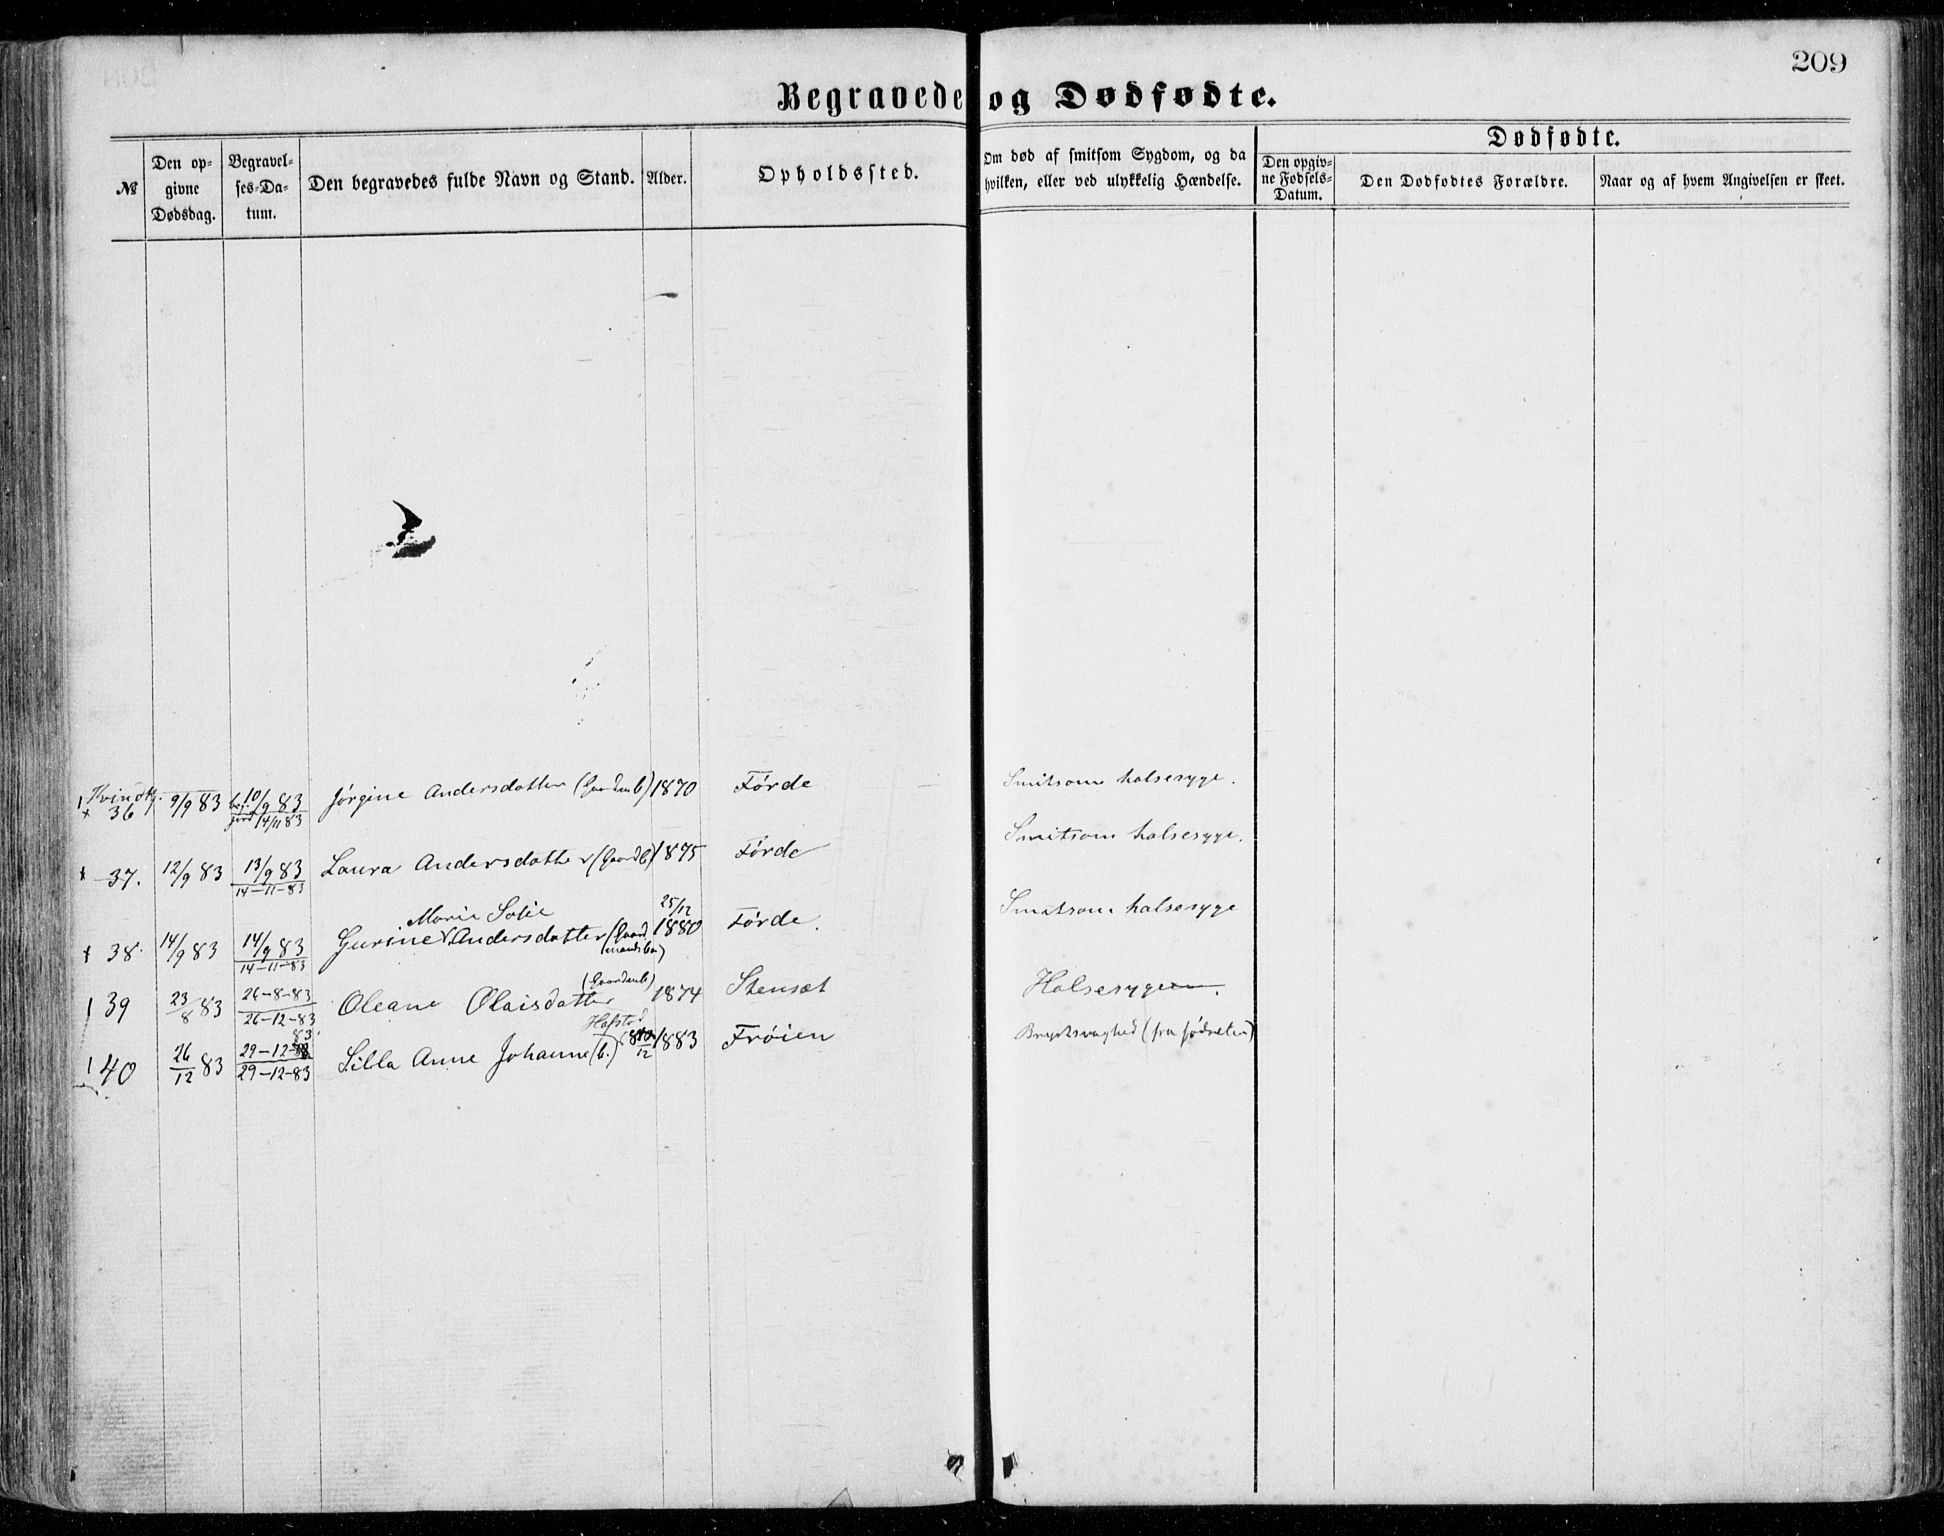 209
Begravede og Dødfødte.
№
Den op-
givne
Dødsdag.
Begravel-
ses-Da-
tum.
Den begravedes fulde Navn og Stand.
Alder.
Opholdssted.
Om død af smitsom Sygdom, og da
hvilken, eller ved ulykkelig Hændelse.
Dødfødte.
Den opgiv-
ne Fødsels-
Datum.
Den Dødfødtes Forældre.
Naar og af hvem Angivelsen er skeet.
Kvindkj.
36 9/9 83 10/9 83 Jørgine Andersdatter (Gaardmb) 1870 Förde Smitsom halsesyge.
14/11 83
37. 12/9 83 13/9 83 Laura Andersdatter (Gaardb) 1875 Förde Smitsom halsesyge.
14-11-83
Marie Sofie 25/12
38 14/9 83 14/9 83 Gurine Andersdatter (Gaard 1880 Förde. Smitsom halsesyge
14-11-83 mandsba)
(Gaardmb)
39 23/8 83 26-8-83 Oleane Olaisdatter 1874 Stensæt Halsesygen.
26-12-83
Hafstad
40 26/12 83 29-12-83 Silla Anne Johanne (b.) 1883 Frøien
29-12-83